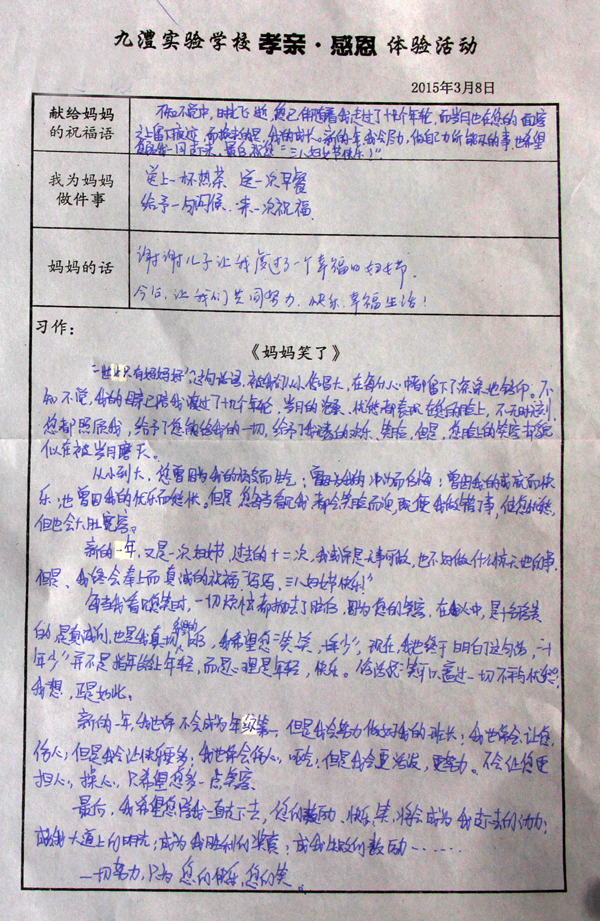 九澧实验学校 孝亲·感恩 体验活动
2015年3月8日
献给妈妈的祝福语
不知不觉中，时光飞逝，您已伴随着我走过了十几个年轮，而岁月也在您的面容
之上留下痕迹，而换来的是，我的成长。新的一年，我会尽力，做自己力所能及的事，也希望
最后祝您"三八妇女节快乐！"
我为妈妈做件事
送上一杯热茶 送一次早餐
给予一句问候 来一次祝福
妈妈的话
谢谢儿子让我度过了一个幸福的妇女节。
今后，让我们共同努力，快乐、幸福生活！
习作：
《妈妈笑了》
"世上只有妈妈好"这句话语，被我们从小唱到大，在每个人心中都留下了深深地印。不
知不觉，我的母亲已陪我渡过了十几个年轮，岁月的沧桑、忧愁都表现在您的脸上，不无时无刻
您都照顾我，给予了您能给我的一切，给予了我的欢乐、笑脸，但是，您脸上的笑容却貌
似在被岁月磨灭。
从小到大，您曾因为我的而生气；曾为我的冲动而后悔；曾因我的成就而快
乐；也曾因我的快乐而愉快。但是，您每当看见我都会笑脸而迎，既使我做错了事，
但也会大肚宽容。
新的一年，又是一次妇女节，过去的十二次，我或许是无事可做，也不知做什么惊天地的事，
但是，我终会奉上而真诚的祝福"妈妈，三八妇女节快乐！"
每当我看见您笑时，一切烦恼都抛去了脑后，因为您的笑容，在我心中，是
的，是真诚的，也是我真切的，我希望您"笑一笑，十年少"，现在，我也终于明白这句话，"十
年少"并不是指年龄上年轻，而是心理是年轻，快乐。俗话说"笑可以盖过一切不幸与忧愁"，
我想，正是如此。
新的一年，我也许不会成为年级第一，但是我会努力做好我的班长；我也许会让您
伤人，但是我会让快乐更多；我也许会伤人，但是我会更发，更努力。不会让您更
担心，操心，只希望您多一点笑容。
最后，我希望您陪我一直走下去，您的鼓励、快乐、笑，将会成为我走下去的动力；
成我大道上的明灯；成为我胜利的奖赏；成我失败的鼓励……
一切努力，只为您的快乐，您的笑。